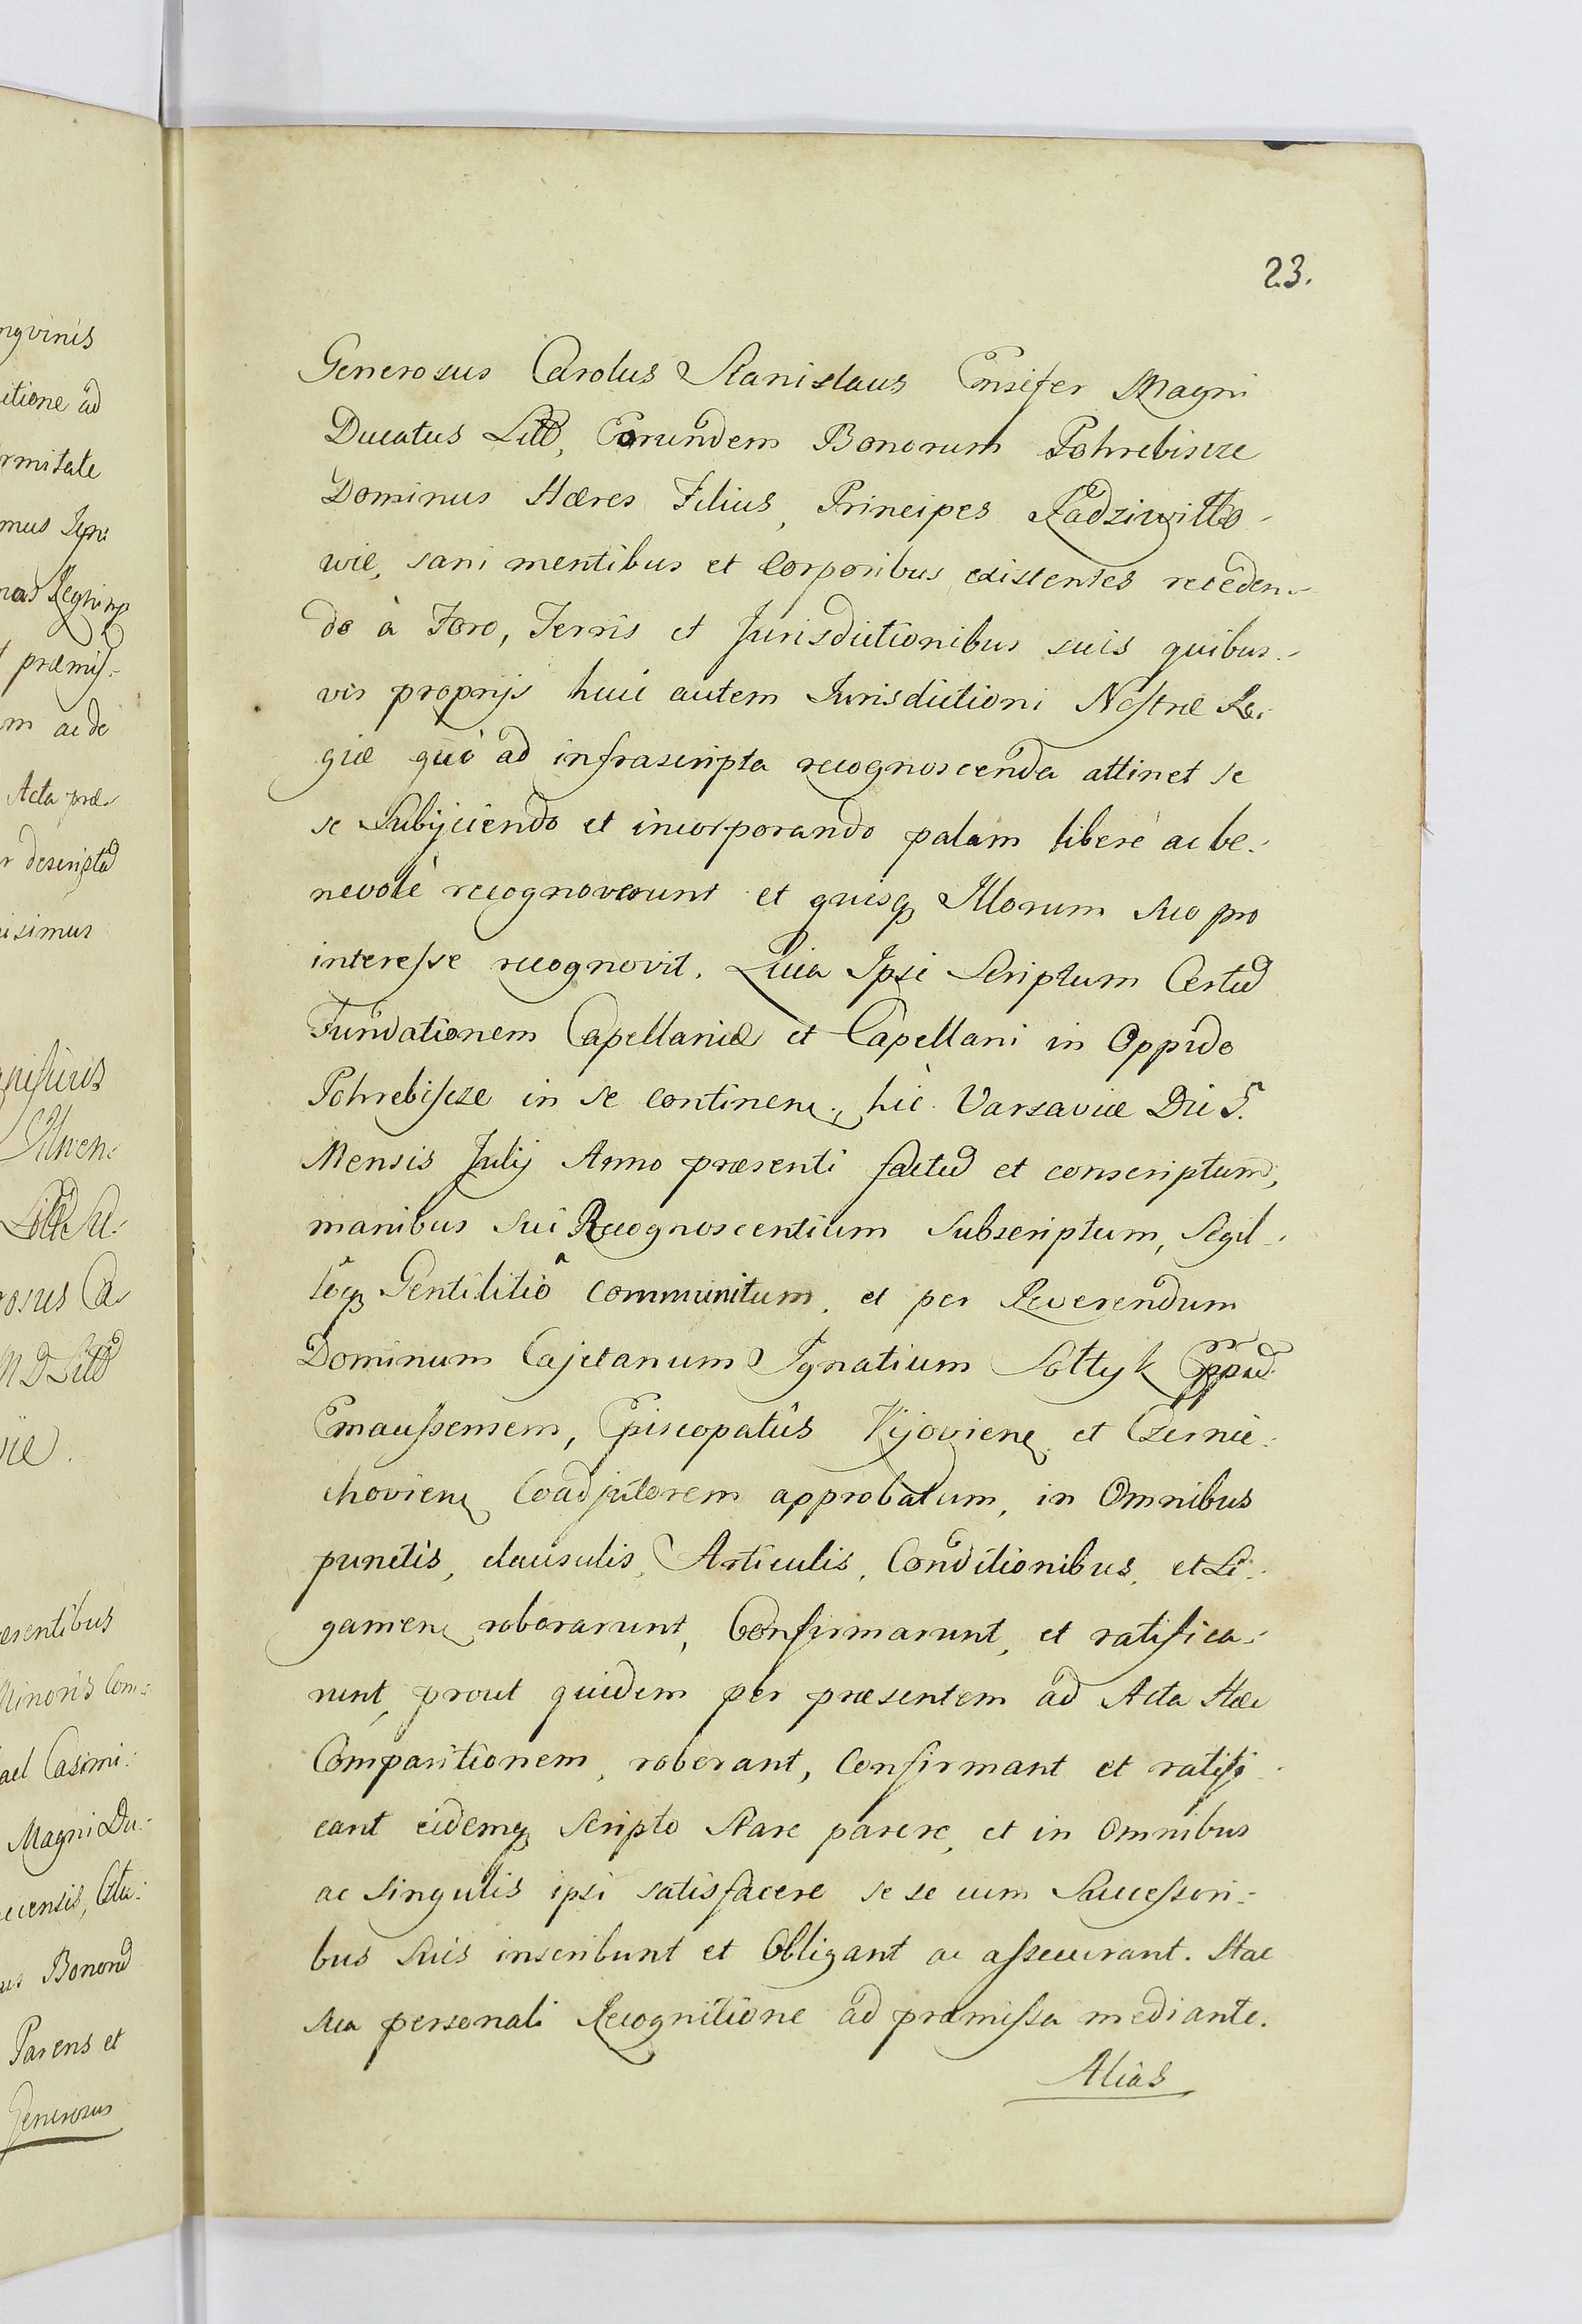 ngvinis
itione ad
rmitate
præmis=
m ac de
Acta præ=
isimus
osus Ca
esentibus
Minoris Com=
ael Casimi=
Magni Du=
Parens et
Generosus
23.
Generosus Carolus Stanislaus Ensifer Magni
Ducatus Litt, Eorundem Bonorum Pohrebiscze
Dominus Hæres Filius, Principes Radziwiłło=
wie, sani mentibus et Corporibus existentes receden=
do à Foro, Terris et Jurisdictionibus suis quibus=
vis proprijs huic autem Jurisdictioni Nostræ Re=
giæ quò ad infrascripta recognoscenda attinet se
se Subijciendo et incorporando palam liberè ac be=
nevolè recognoverunt et quisq Illorum suo pro
interesse recognovit. Quia Ipsi Scriptum Certũ
Fundationem Capellaniæ et Capellani in Oppido
Pohrebiscze in se continen., hic Varsaviæ Die 5.
Mensis Julij Anno præsenti factũ et conscriptum,
manibus sui Recognoscentium subscriptum, Sigil=
loq Gentilitiô communitum, et per Reverendum
Dominum Cajetanum Ignatium Sołtyk Eppũ
Emaussensem, Episcopatûs Kijovien et Czernie=
chovien Coadjutorem approbatum, in Omnibus
punctis, clausulis, Articulis, Conditionibus, et Li=
gamen roborarunt, Confirmarunt, et ratifica=
runt, prout quidem per præsentem ad Acta Hæc
Comparitionem, roborant, Confirmant et ratifi=
cant eidemq Scripto Stare parere, et in Omnibus
ac singulis ipsi satisfacere se se cum Successori=
bus Suis inscribunt et Obligant ac assecurant. Hac
sua personali Recognitione ad præmissa mediante.
Alias